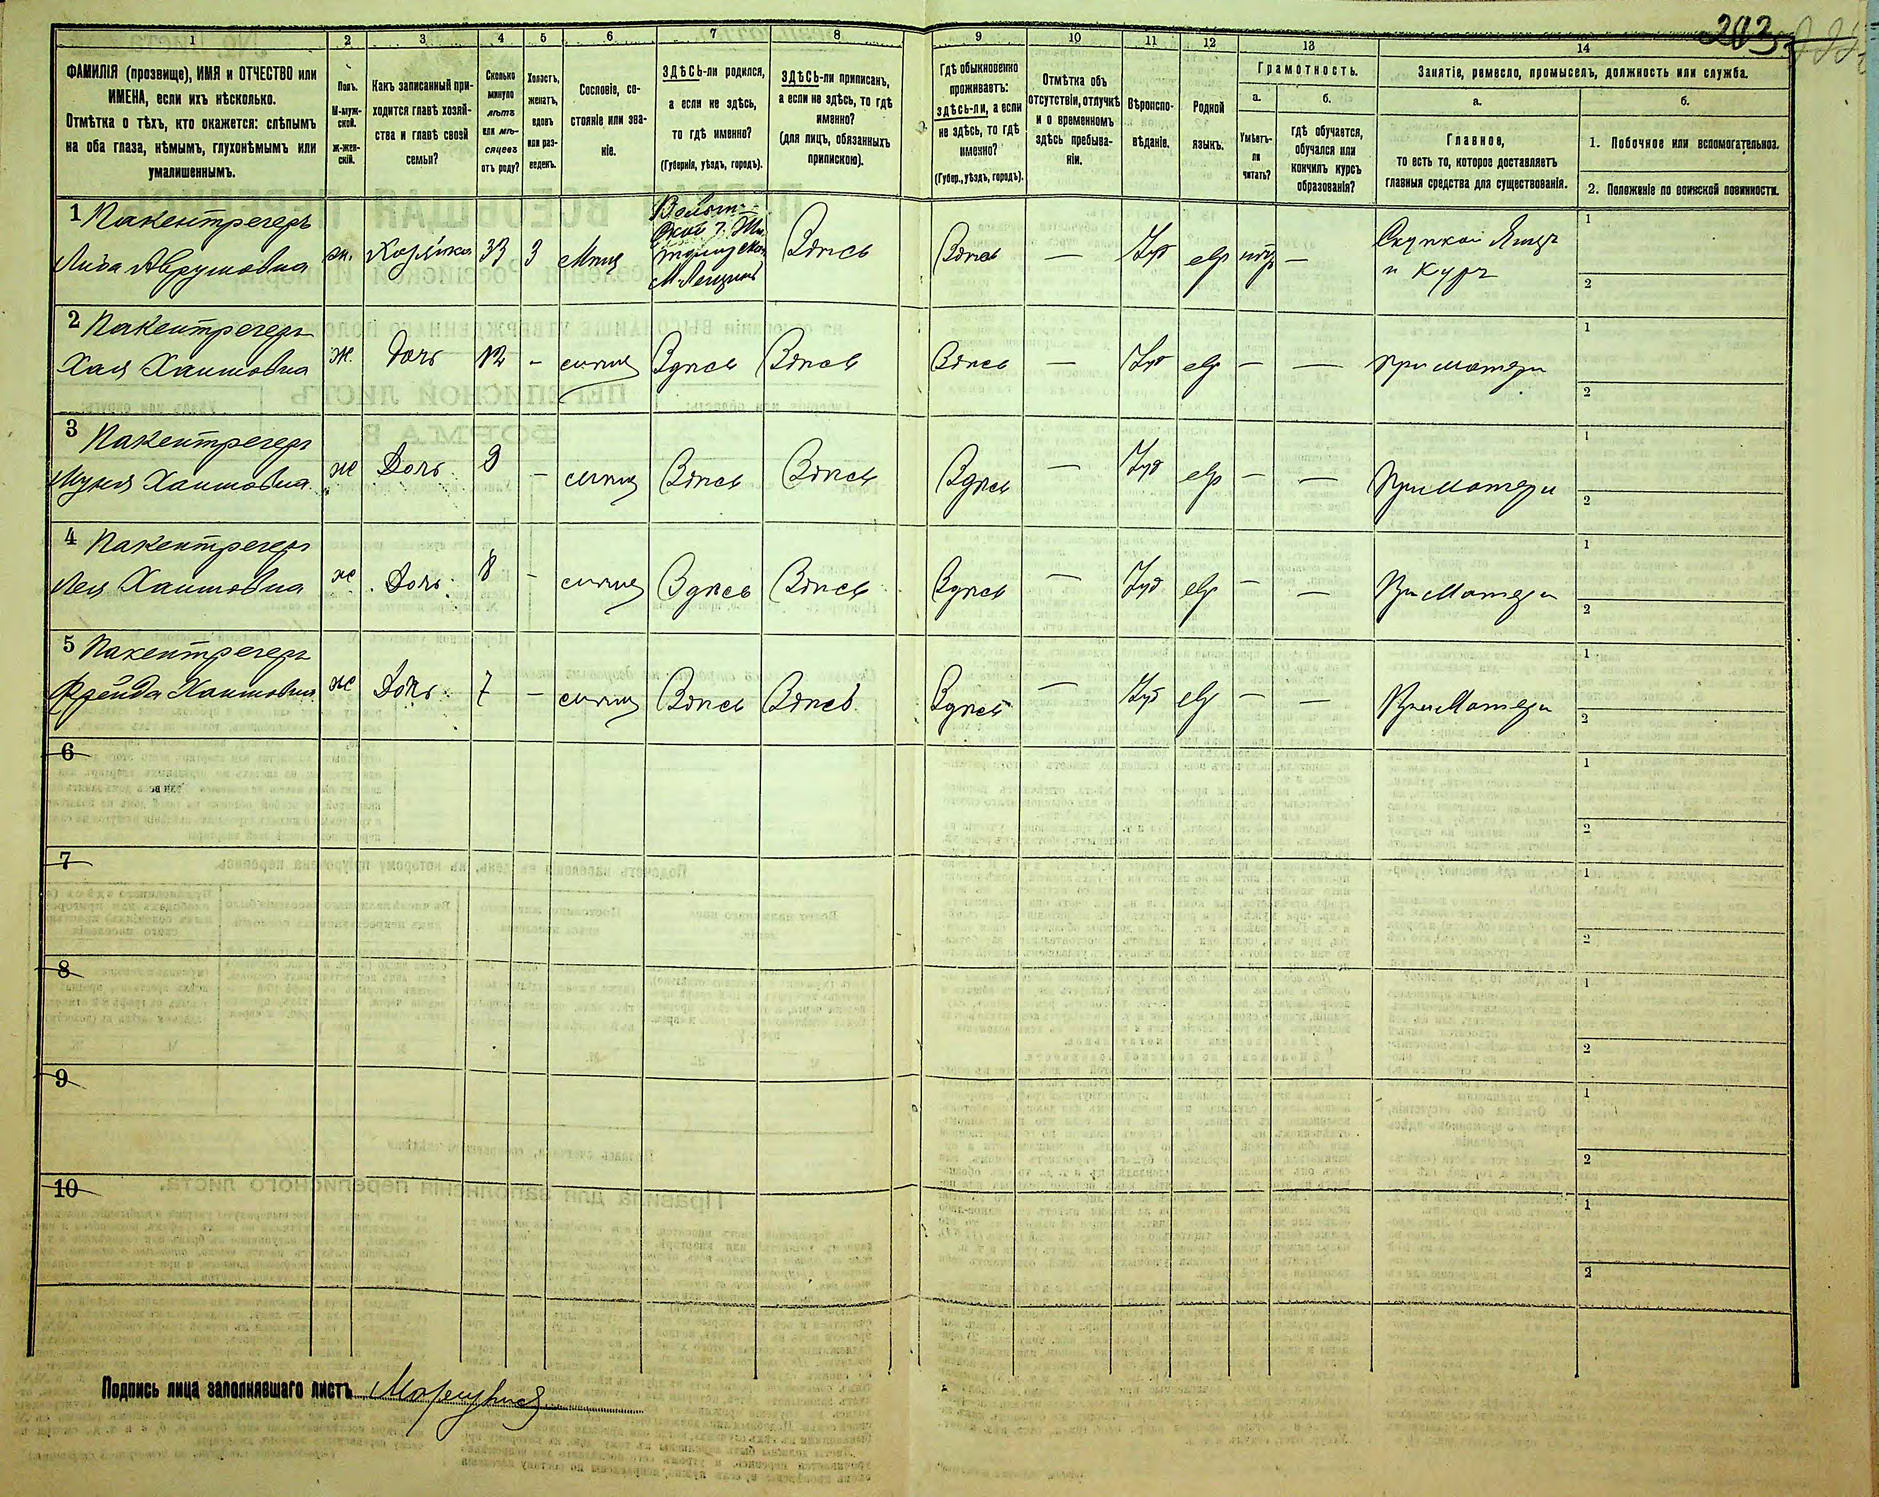 203
1
2
3
4
5
6
7
8
9
10
11
12
13
14
ФАМИЛІЯ (прозвище), ИМЯ и ОТЧЕСТВО или
ИМЕНА, если ихъ нѣсколько.
Отмѣтка о тѣхъ, кто окажется: слѣпымъ
на оба глаза, нѣмымъ, глухонѣмымъ или
умалишеннымъ.
Полъ.
М-муж-
ской.
Ж-жен-
скій.
Какъ записанный при-
ходится главѣ хозяй-
ства и главѣ своей
семьи?
Сколько
минуло
лѣтъ
или мѣ-
сяцевъ
отъ роду?
Холостъ,
женатъ,
вдовъ
или раз-
веденъ.
Сословіе, со-
стояніе или зва-
ніе.
ЗДѢСЬ-ли родился,
а если не здѣсь,
то гдѣ именно?
(Губернія, уѣздъ, городъ).
ЗДѢСЬ-ли приписанъ,
а если не здѣсь, то гдѣ
именно?
(для лицъ, обязанныхъ
припискою).
Гдѣ обыкновенно
проживаетъ:
здѣсь-ли, а если
не здѣсь, то гдѣ
именно?
(Губер., уѣздъ, городъ).
Отмѣтка объ
отсутствіи, отлучкѣ
и о временномъ
здѣсь пребыва-
ніи.
Вѣроиспо-
вѣданіе.
Родной
языкъ.
Грамотность.
а.
Умѣетъ-
ли
читать?
б.
гдѣ обучается,
обучался или
кончилъ курсъ
образованія?
Занятіе, ремесло, промыселъ, должность или служба.
а.
Главное,
то есть то, которое доставляетъ
главныя средства для существованія.
б.
1. Побочное или вспомогательное.
2. Положеніе по воинской повинности.
1 Пакентрегеръ
Аврумовна ж. Хозяйка 33 3 Здѣсь Здѣсь — Іуд евр —
и Куръ
1
2
2 Пакентрегеръ
Хая Хаимовна ж. дочь 12 - Здѣсь Здѣсь Здѣсь — Іуд евр — — при матери
1
2
3 Пакентрегеръ
Хаимовна ж Дочь 9 - Здѣсь Здѣсь Здѣсь — Іуд евр — — При Матери
1
2
4 Пакентрегеръ
Лея Хаимовна ж Дочь 8 - Здѣсь Здѣсь Здѣсь — Іуд евр — — При Матери
1
2
5 Пакентрегеръ
Фрейда Хаимовна ж Дочь 7 - Здѣсь Здѣсь Здѣсь — Іуд евр — — При Матери
1
2
6
1
2
7
1
2
8
1
2
9
1
2
10
1
2
Подпись лица заполнявшаго листъ